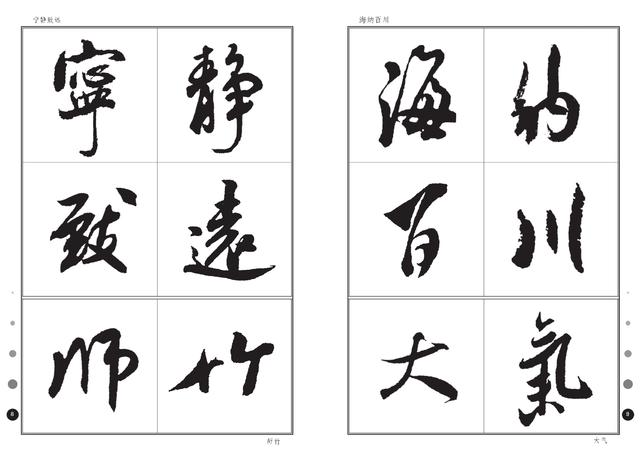 宁静致远
寧静
致遠
师竹
师竹
海纳百川
海纳
百川
大氣
大气